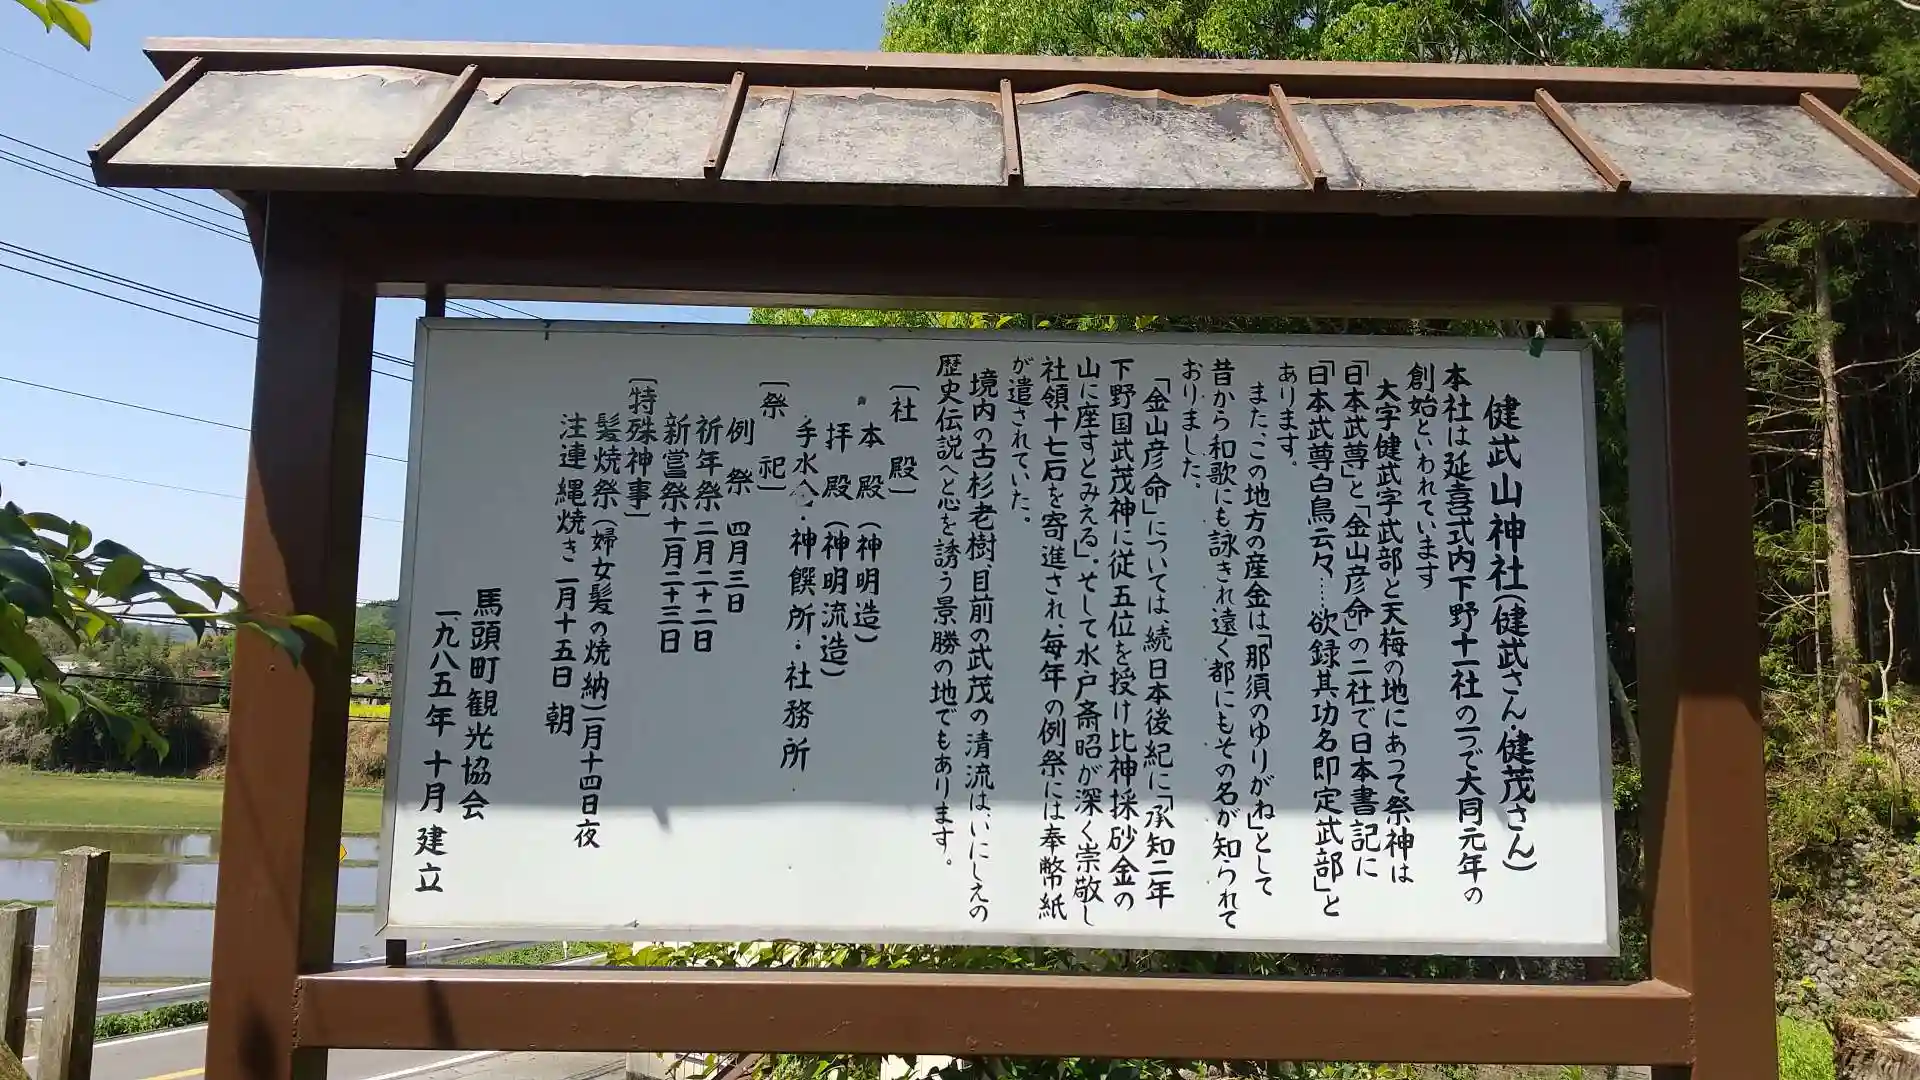 健武山神社(健武さん・健茂さん)
本社は延喜式内下野十一社の一つで大同元年の
創始といわれています
大字健武字武部と天梅の地にあって祭神は
「日本武尊」と「金山彦命」の二社で日本書記に
「日本武尊白鳥云々…欲録其功名即定武部」と
あります。
また、この地方の産金は「那須のゆりがね」として
昔から和歌にも詠まれ遠く都にもその名が知られて
おりました。
「金山彦命」については、続日本後紀に「承知二年
下野国武茂神に従五位を授け比神採砂金の
山に座すとみえる」。そして水戸斎昭が深く崇敬し
社領十七石を寄進され、毎年の例祭には奉幣紙
が遣されていた。
境内の古杉老樹、目前の武茂の清流は、いにしえの
歴史伝説へと心を誘う景勝の地でもあります。
〔社殿〕
本殿(神明造)
拝殿(神明流造)
手水舎・神饌所・社務所
〔祭祀〕
例祭 四月三日
祈年祭 二月二十二日
新嘗祭 十一月二十三日
〔特殊神事〕
髪焼祭(婦女髪の焼納)一月十四日夜
注連縄焼き 一月十五日 朝
馬頭町観光協会
一九八五年十月建立